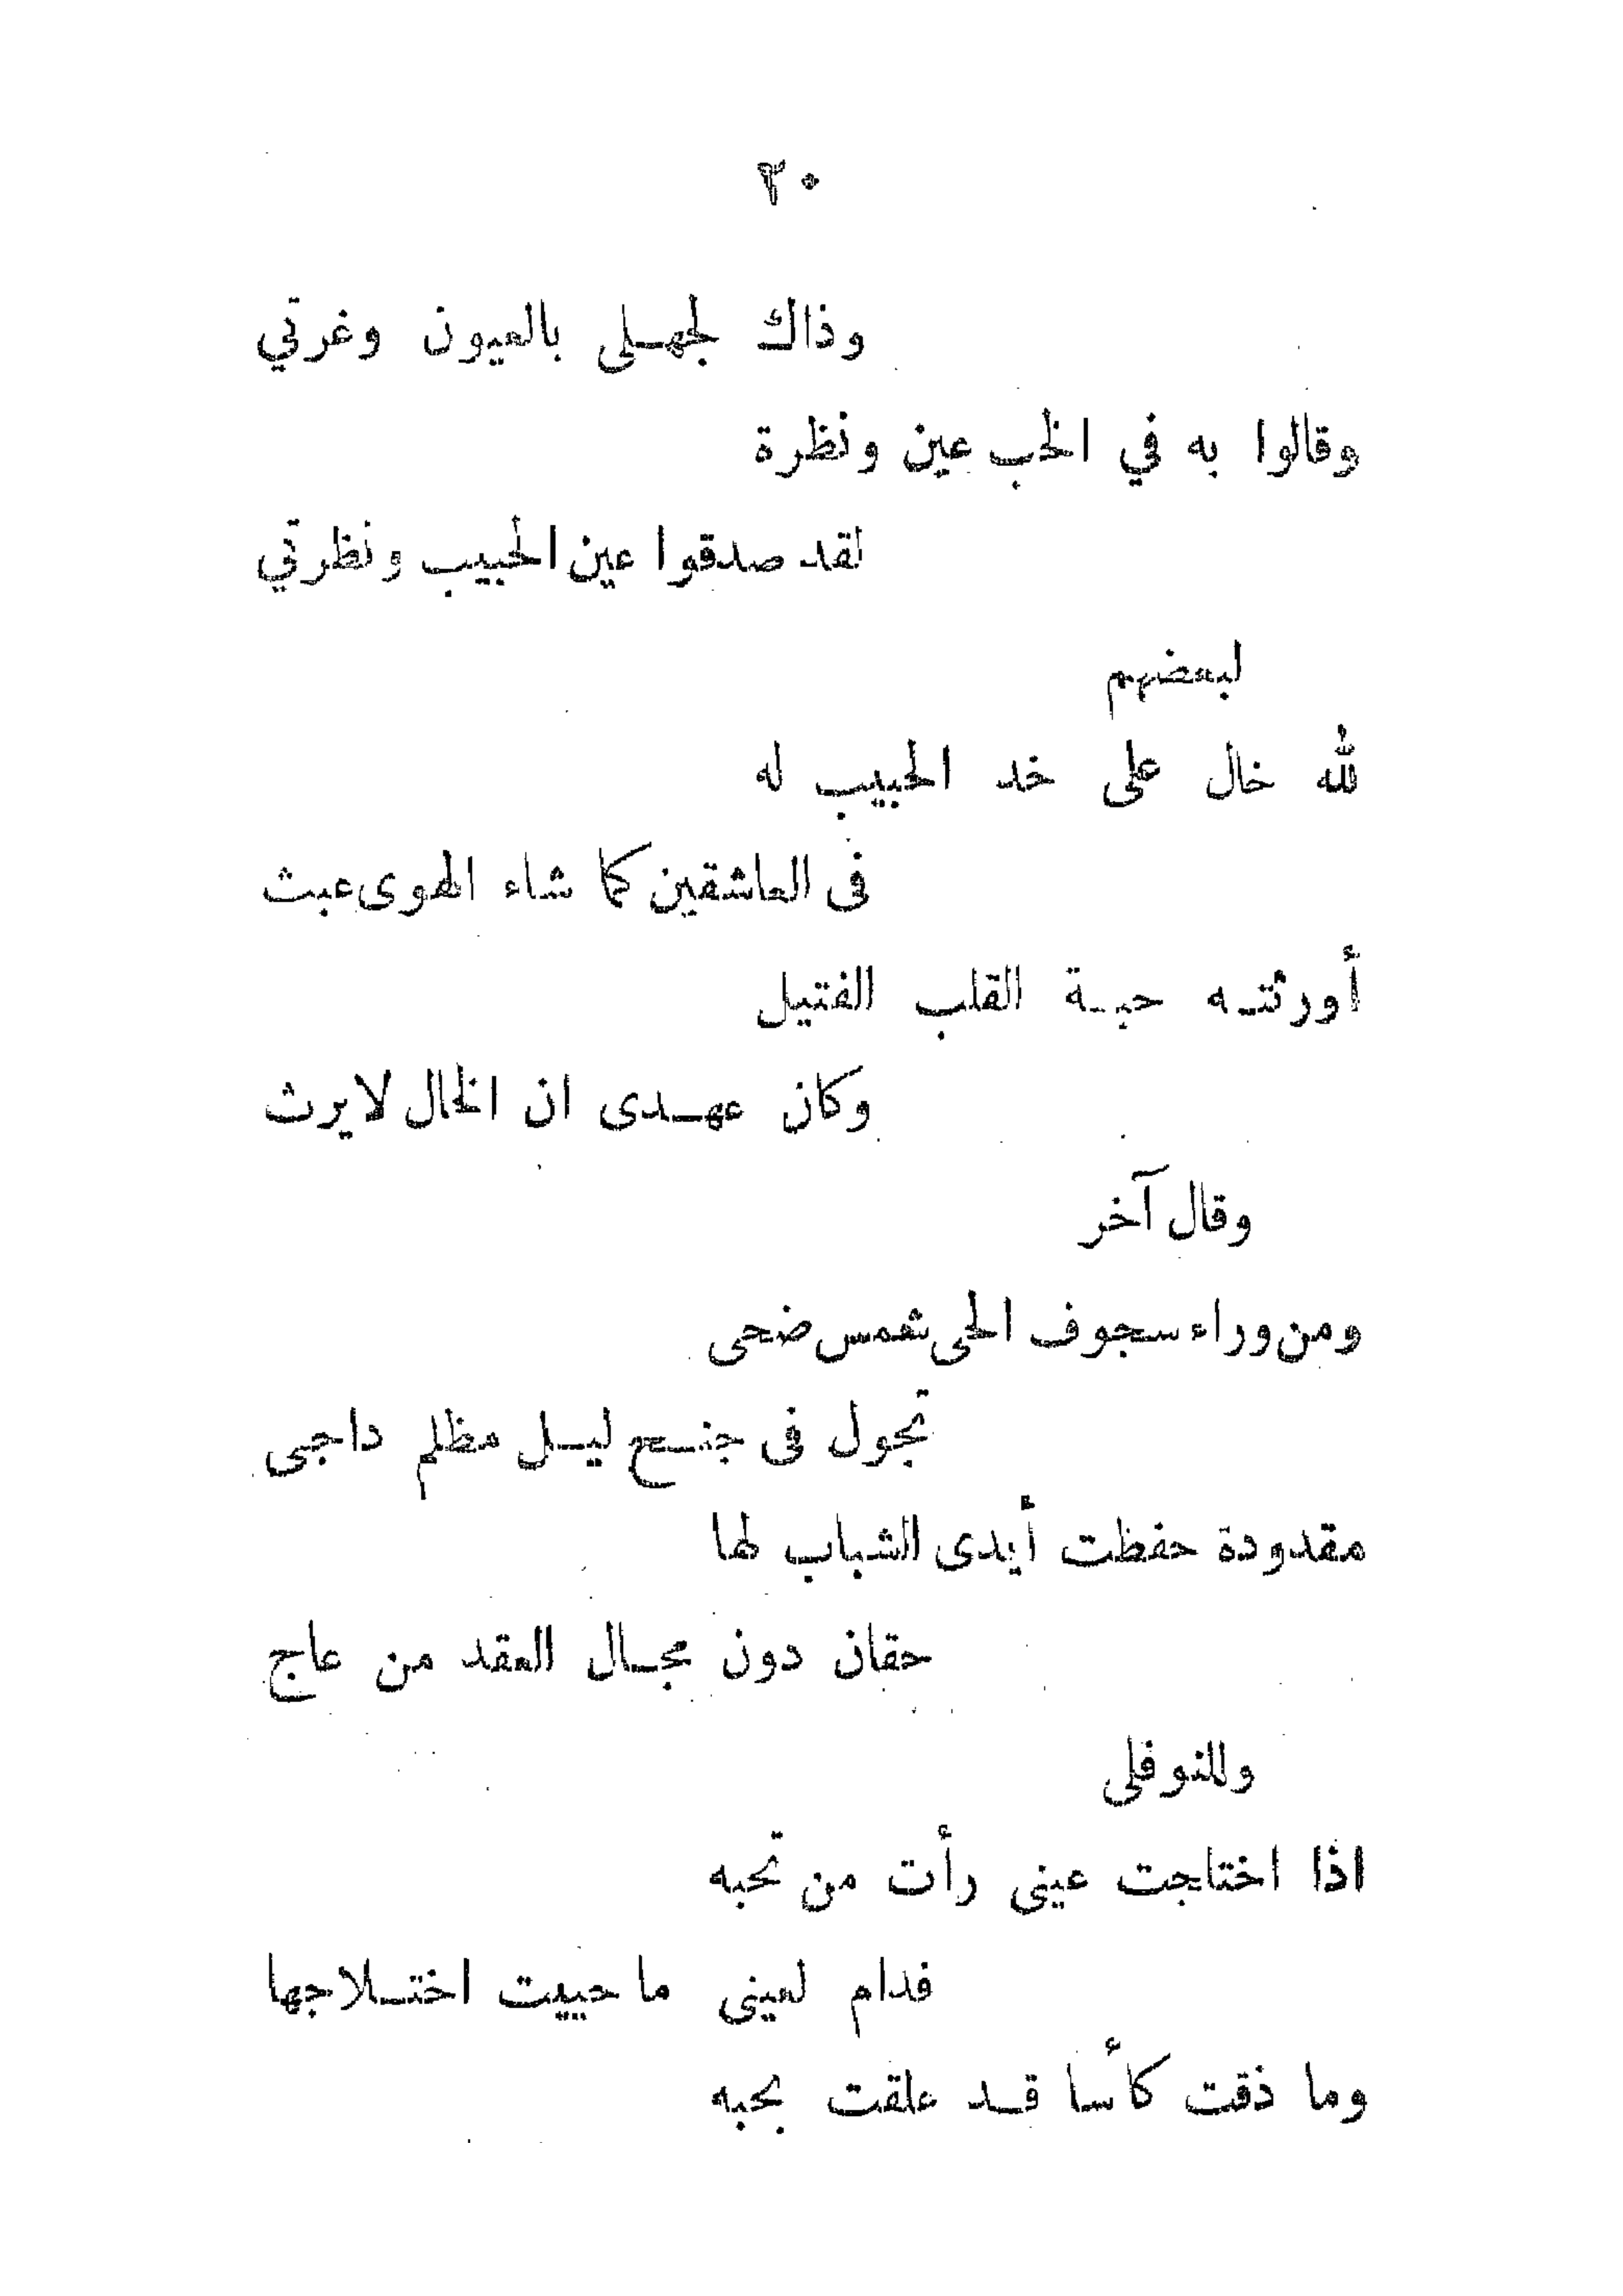 ٢٠
وذاك لجهلى بالعيون وغرتي
وقالوا به في الخب عين ونظرة
لقد صدقوا عين الحبيب ونظرتي
لبعضهم
لله خال على خد الحبيب له
فى العاشقين كما شاء الهوى عبث
أورثته حبة القلب الفتيل
وكان عهدى ان الخال لا يرث
وقال آخر
ومن وراء سجوف الحى شمس ضحى
تجول فى جنح ليل مظلم داجى
مقدودة حفظت أيدى الشباب لها
حقان دون مجال العقد من عاج
وللنوفلى
اذا اختاجت عينى رأت من تحبه
فدام لعينى ما حييت اختلاجها
وما ذقت كأسا قد علقت بحبه